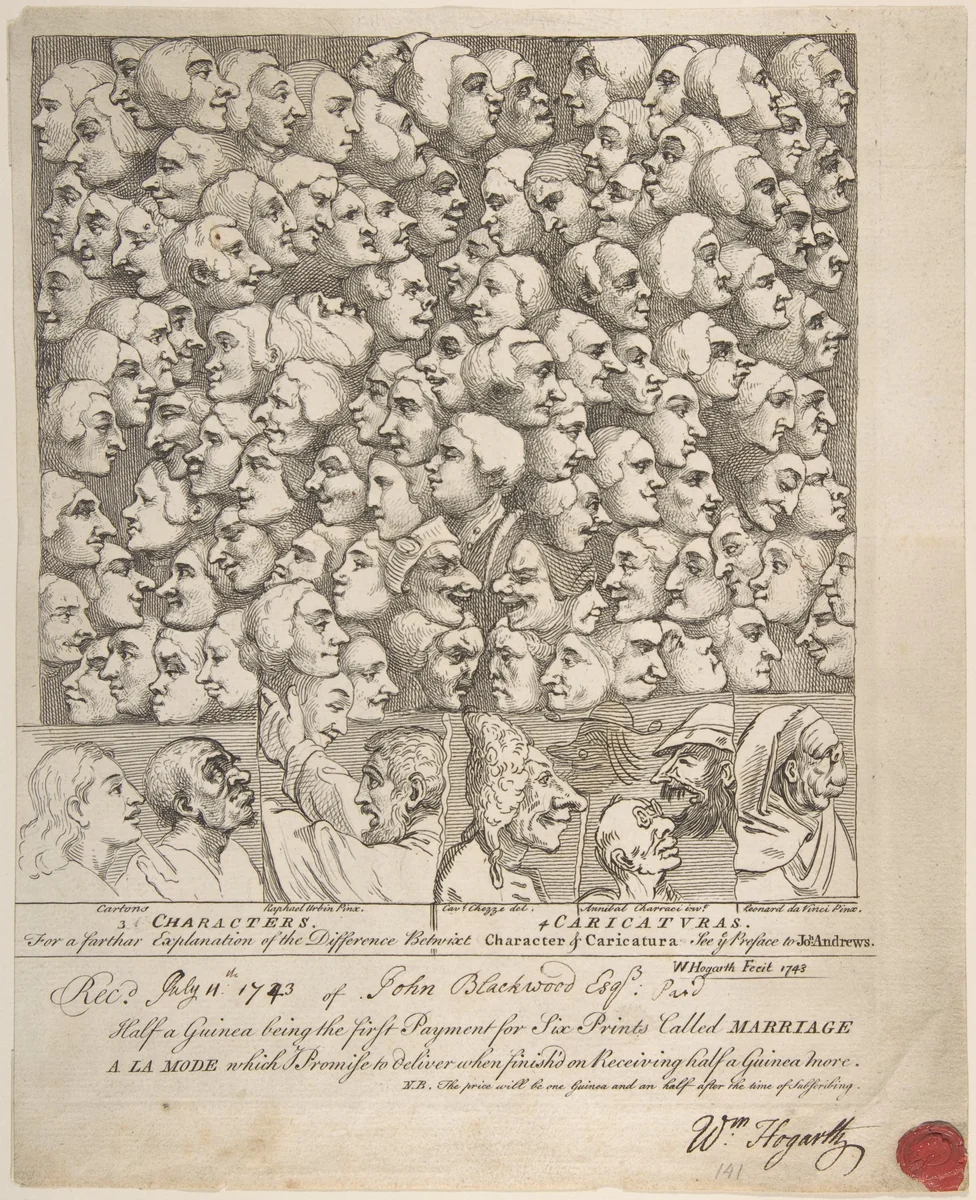 Cartons Raphael Urbin Pinx. Cavr. Chezze del. Annibal Charraci invt. Leonard da Vinci Pinx.
3 CHARACTERS. 4 CARICATVRAS.
For a farthar Explanation of the Difference Betwixt Character & Caricatura See ye Preface to Jos. Andrews.
W Hogarth Fecit 1743
Recd. July 11th. 1743 of John Blackwood Esqr. Paid
Half a Guinea being the first Payment for Six Prints Called MARRIAGE
A LA MODE which I Promise to deliver when finish'd on Receiving half a Guinea more.
N.B. The price will be one Guinea and an half after the time of Subscribing.
Wm. Hogarth
141